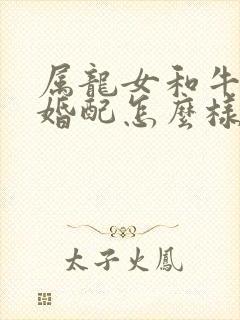 属龍女和牛
婚配怎麼樣
太子火鳳